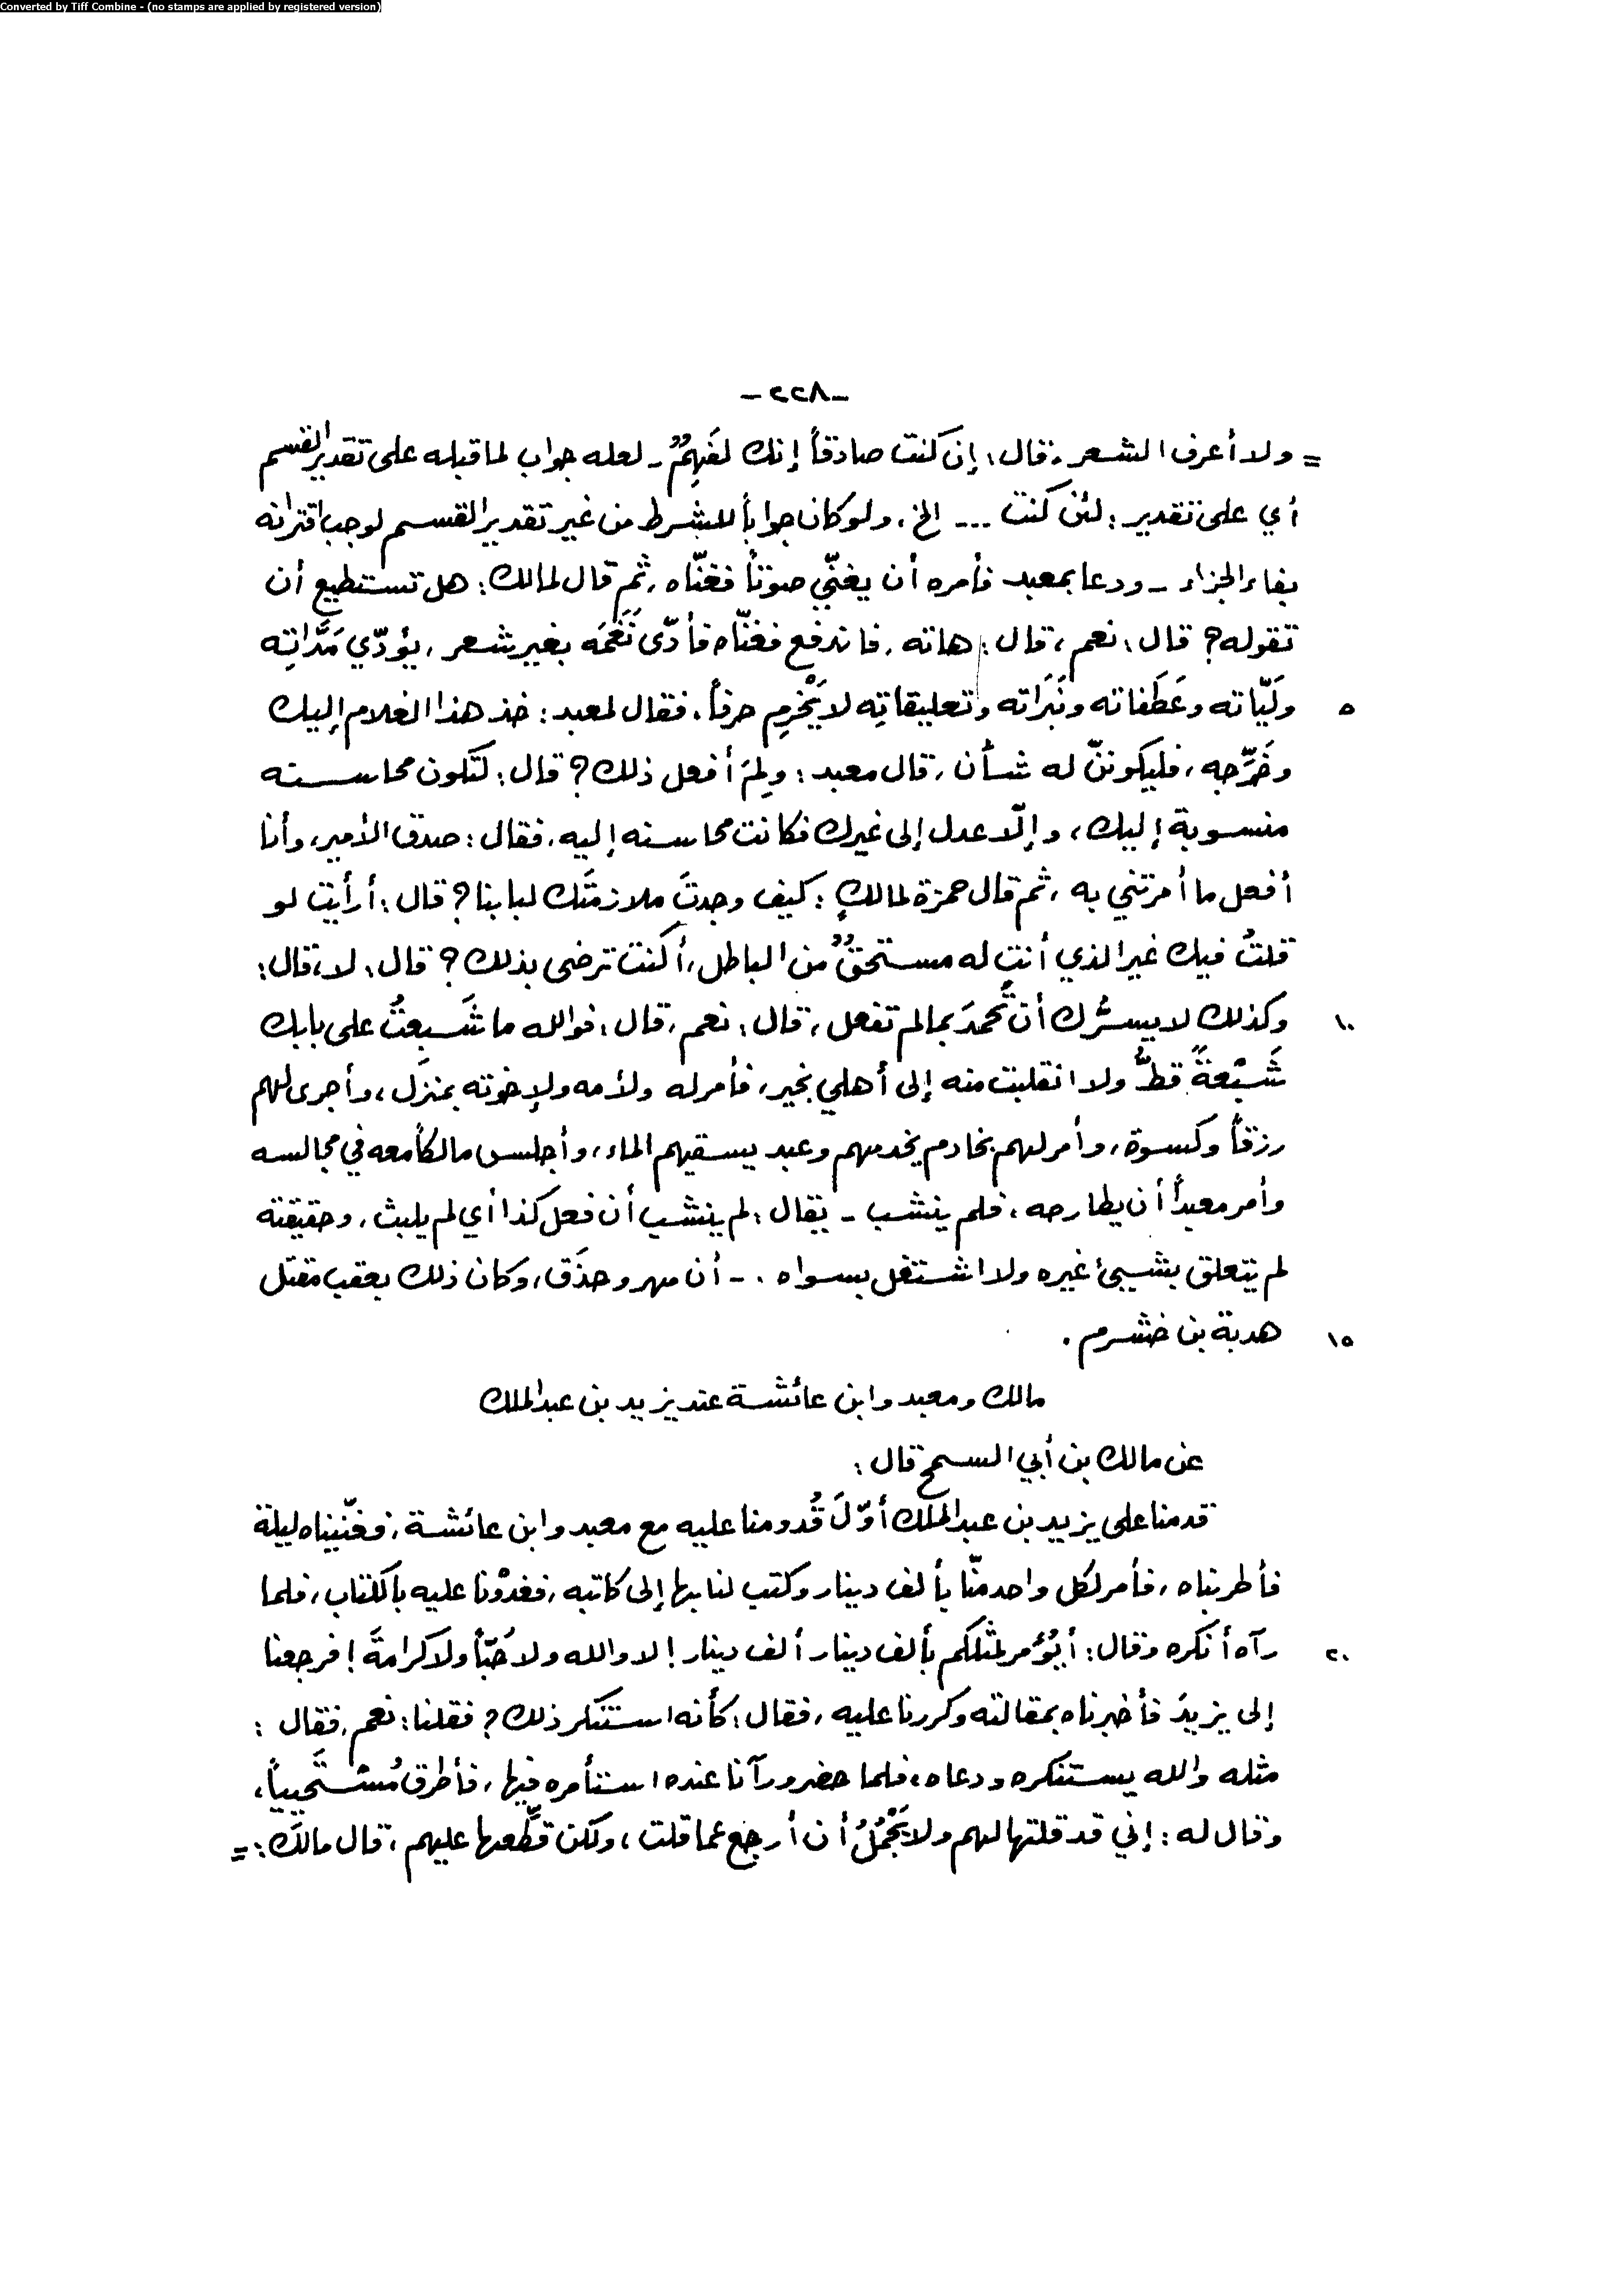 Converted by Tiff Combine - (no stamps are applied by registered version)
-٢٢٨-
= ولا أعرف الشعر، قال: إن كنت صادقاً إنك لفَهِمٌ - لعله جواب لما قبله على تقدير القسم
أي على تقدير: لئن كنت ... الخ، ولو كان جواباً للشرط من غير تقدير القسم لوجب اقترانه
بفاء الجزاء - ودعا بمعبد فأمره أن يغنّي صوتاً فغنّاه، ثم قال لمالك: هل تستطيع أن
تقوله؟ قال: نعم، قال: هاته، فاندفع فغنّاه فأدّى نَغَمَه بغير شعر، يؤدّي مَدَّاتِه
٥ وليّاته وعَطَفاته ونَبَراته وتعليقاتِه لا يَخْرِم حرفاً، فقال لمعبد: خذ هذا الغلام إليك
وخَرِّجه، فليكوننّ له شأن، قال معبد: ولِمَ أفعل ذلك؟ قال: لتكون محاسنه
منسوبة إليك، وإلّا عدل إلى غيرك فكانت محاسنه إليه، فقال: صدق الأمير، وأنا
أفعل ما أمرتني به، ثم قال حمزة لمالكٍ: كيف وجدتَ ملازمتَك لبابنا؟ قال: أرأيت لو
قلتُ فيك غير الذي أنت له مستحقٌّ من الباطل، أكنت ترضى بذلك؟ قال: لا، قال:
١٠ وكذلك لا يسرُّك أن تُحمدَ بمالم تفعل، قال: نعم، قال: فوالله ما شَبِعتُ على بابك
شَبْعَةً قطُّ ولا انقلبت منه إلى أهلي بخير، فأمر له ولأمه ولإخوته بمنزل، وأجرى لهم
رزقاً وكسوة، وأمر لهم بخادم يخدمهم وعبد يسقيهم الماء، وأجلس مالكاً معه في مجالسه
وأمر معبداً أن يطارحه، فلم ينشب - يقال: لم ينشب أن فعل كذا أي لم يلبث، وحقيقته
لم يتعلق بشيئ غيره ولا اشتغل بسواه .- أن مهر وحذَق، وكان ذلك بعقب مقتل
١٥ هدبة بن خشرم .
مالك ومعبد وابن عائشة عند يزيد بن عبدالملك
عن مالك بن أبي السمح قال:
قدمنا على يزيد بن عبدالملك أوّلَ قُدومنا عليه مع معبد وابن عائشة، فغنّيناه ليلة
فأطربناه، فأمر لكل واحد منّا بألف دينار وكتب لنا بها إلى كاتبه، فغدَوْنا عليه بالكتاب، فلما
٢٠ رآه أنكره وقال: أيُؤمر لمثلكم بألف دينار ألف دينار! لا والله ولا حُبّاً ولا كرامةً! فرجعنا
إلى يزيدَ فأخبرناه بمقالته وكررنا عليه، فقال: كأنه استنكر ذلك؟ فقلنا: نعم، فقال:
مثله والله يستنكره ودعاه، فلما حضر ورآنا عنده استأمره فيها، فأطرق مُسْتَحييياً،
وقال له: إني قد قلتها لهم ولا يَجْمُلُ أن أرجع عما قلت، ولكن قطِّعها عليهم، قال مالك: =